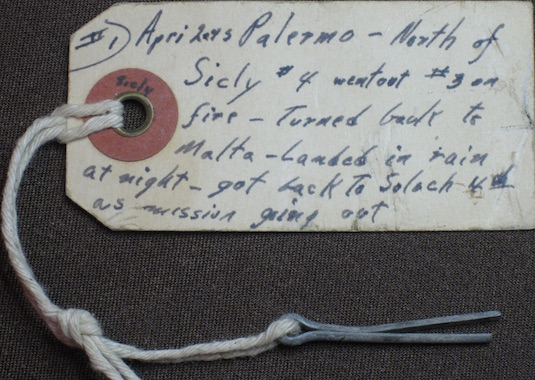 #1) Apri 2 1943 Palermo - North of
Sicly
Sicly #4 wentout #3 on
fire - Turned back to
Malta - Landed in rain
at night - got back to Soluch
as mission going out